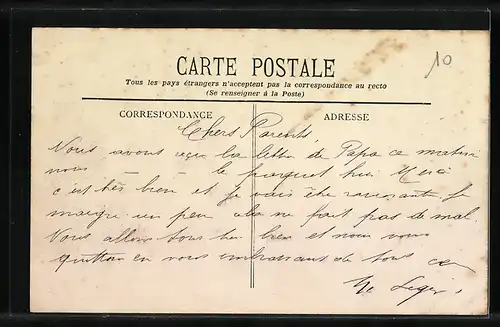 10
CARTE POSTALE
Tous les pays étrangers n'acceptent pas la correspondance au recto
(Se renseigner à la Poste)
CORRESPONDANCE
ADRESSE
Chers Parents,
Nous avons reçu la lettre de Papa ce matin
nous — — le parquet hier. Merci
c'est très bien et je vais être ravissante je
maigri un peu cela ne fait pas de mal.
Nous allons tous bien et nous vous
quittons en vous embrassant de tous